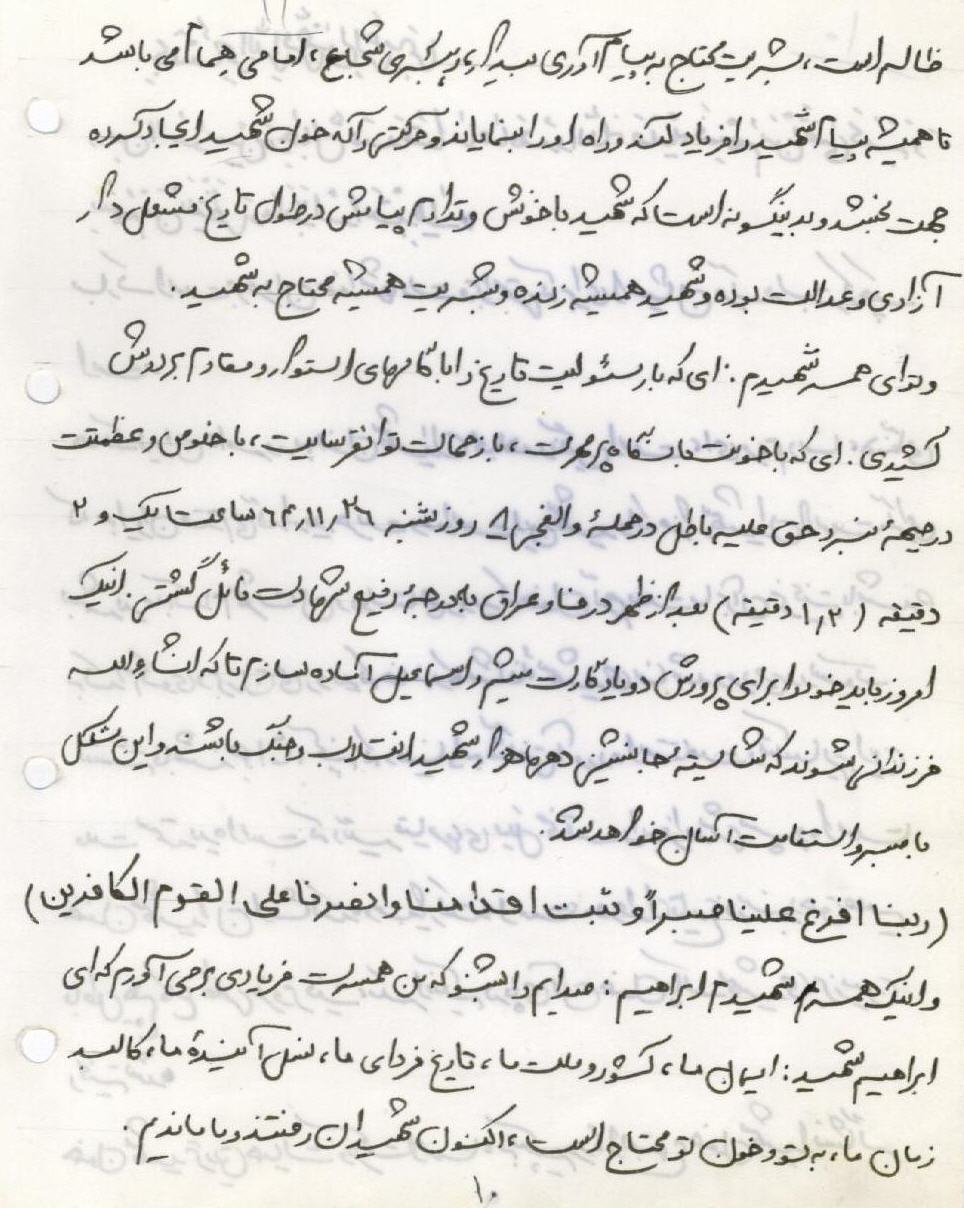 ظالم است، بشریت محتاج به پیام آوری بیدار، رهبری شجاع، امامی هم آمی باشد
تا همیشه پیام شهید را فریاد کند و راه او را بنمایاند و حرکتی را که خون شهید ایجاد کرده
جهت بخشد و بدینگونه است که شهید با خونش و تداوم پیامش در طول تاریخ مشعل دار
آزادی و عدالت بوده و شهید همیشه زنده و بشریت همیشه محتاج به شهید.
و تو ای همسر شهیدم: ای که بار مسئولیت تاریخ را با گامهای استوار و مقاوم بر دوش
کشیدی. ای که با خونت با نگاه پر مهرت، با زحمات توانفرسایت، با خلوص و عظمتت
در جبههٔ نبرد حق علیه باطل در حملهٔ والفجر ۸ روز شنبه ۶۴/۱۱/۲۶ ساعت یک و ۲
دقیقه (۱/۲ دقیقه) بعد از ظهر در فاو عراق به درجهٔ رفیع شهادت نائل گشتی. اینک
امروز باید خود را برای پرورش دو یادگارت میثم و اسماعیل آماده سازم تا که انشاءالله
فرزندانی شوند که شایستهٔ جانشینی دهها هزار شهید انقلاب و جنگ باشند و این مشکل
با صبر و استقامت آسان خواهد شد.
(ربنا افرغ علینا صبراً و ثبت اقدامنا وانصرنا علی القوم الکافرین)
و اینک همسرم شهیدم ابراهیم: صدایم را بشنو که من همسرت فریادی برمی آورم که ای
ابراهیم شهید: ایمان ما، کشور و ملت ما، تاریخ فردای ما، نسل آیندهٔ ما، کالبد
زمان ما، به تو و خون تو محتاج است، اکنون شهیدان رفتند و ما ماندیم.
۱۰